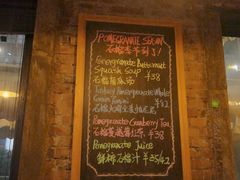 POMEGRANATE SEASON
石榴季节到了!
Pomegranate Butternut
Squash Soup ¥38
石榴南瓜汤
Turkey Pomegranate Whole
Grain ¥52
石榴火鸡全麦
Pomegranate Cranberry Tea
石榴蔓越莓红茶 ¥38
Pomegranate Juice
鲜榨石榴汁 ¥35/42